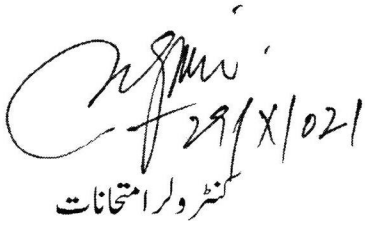 29/X/021
کنٹرولر امتحانات